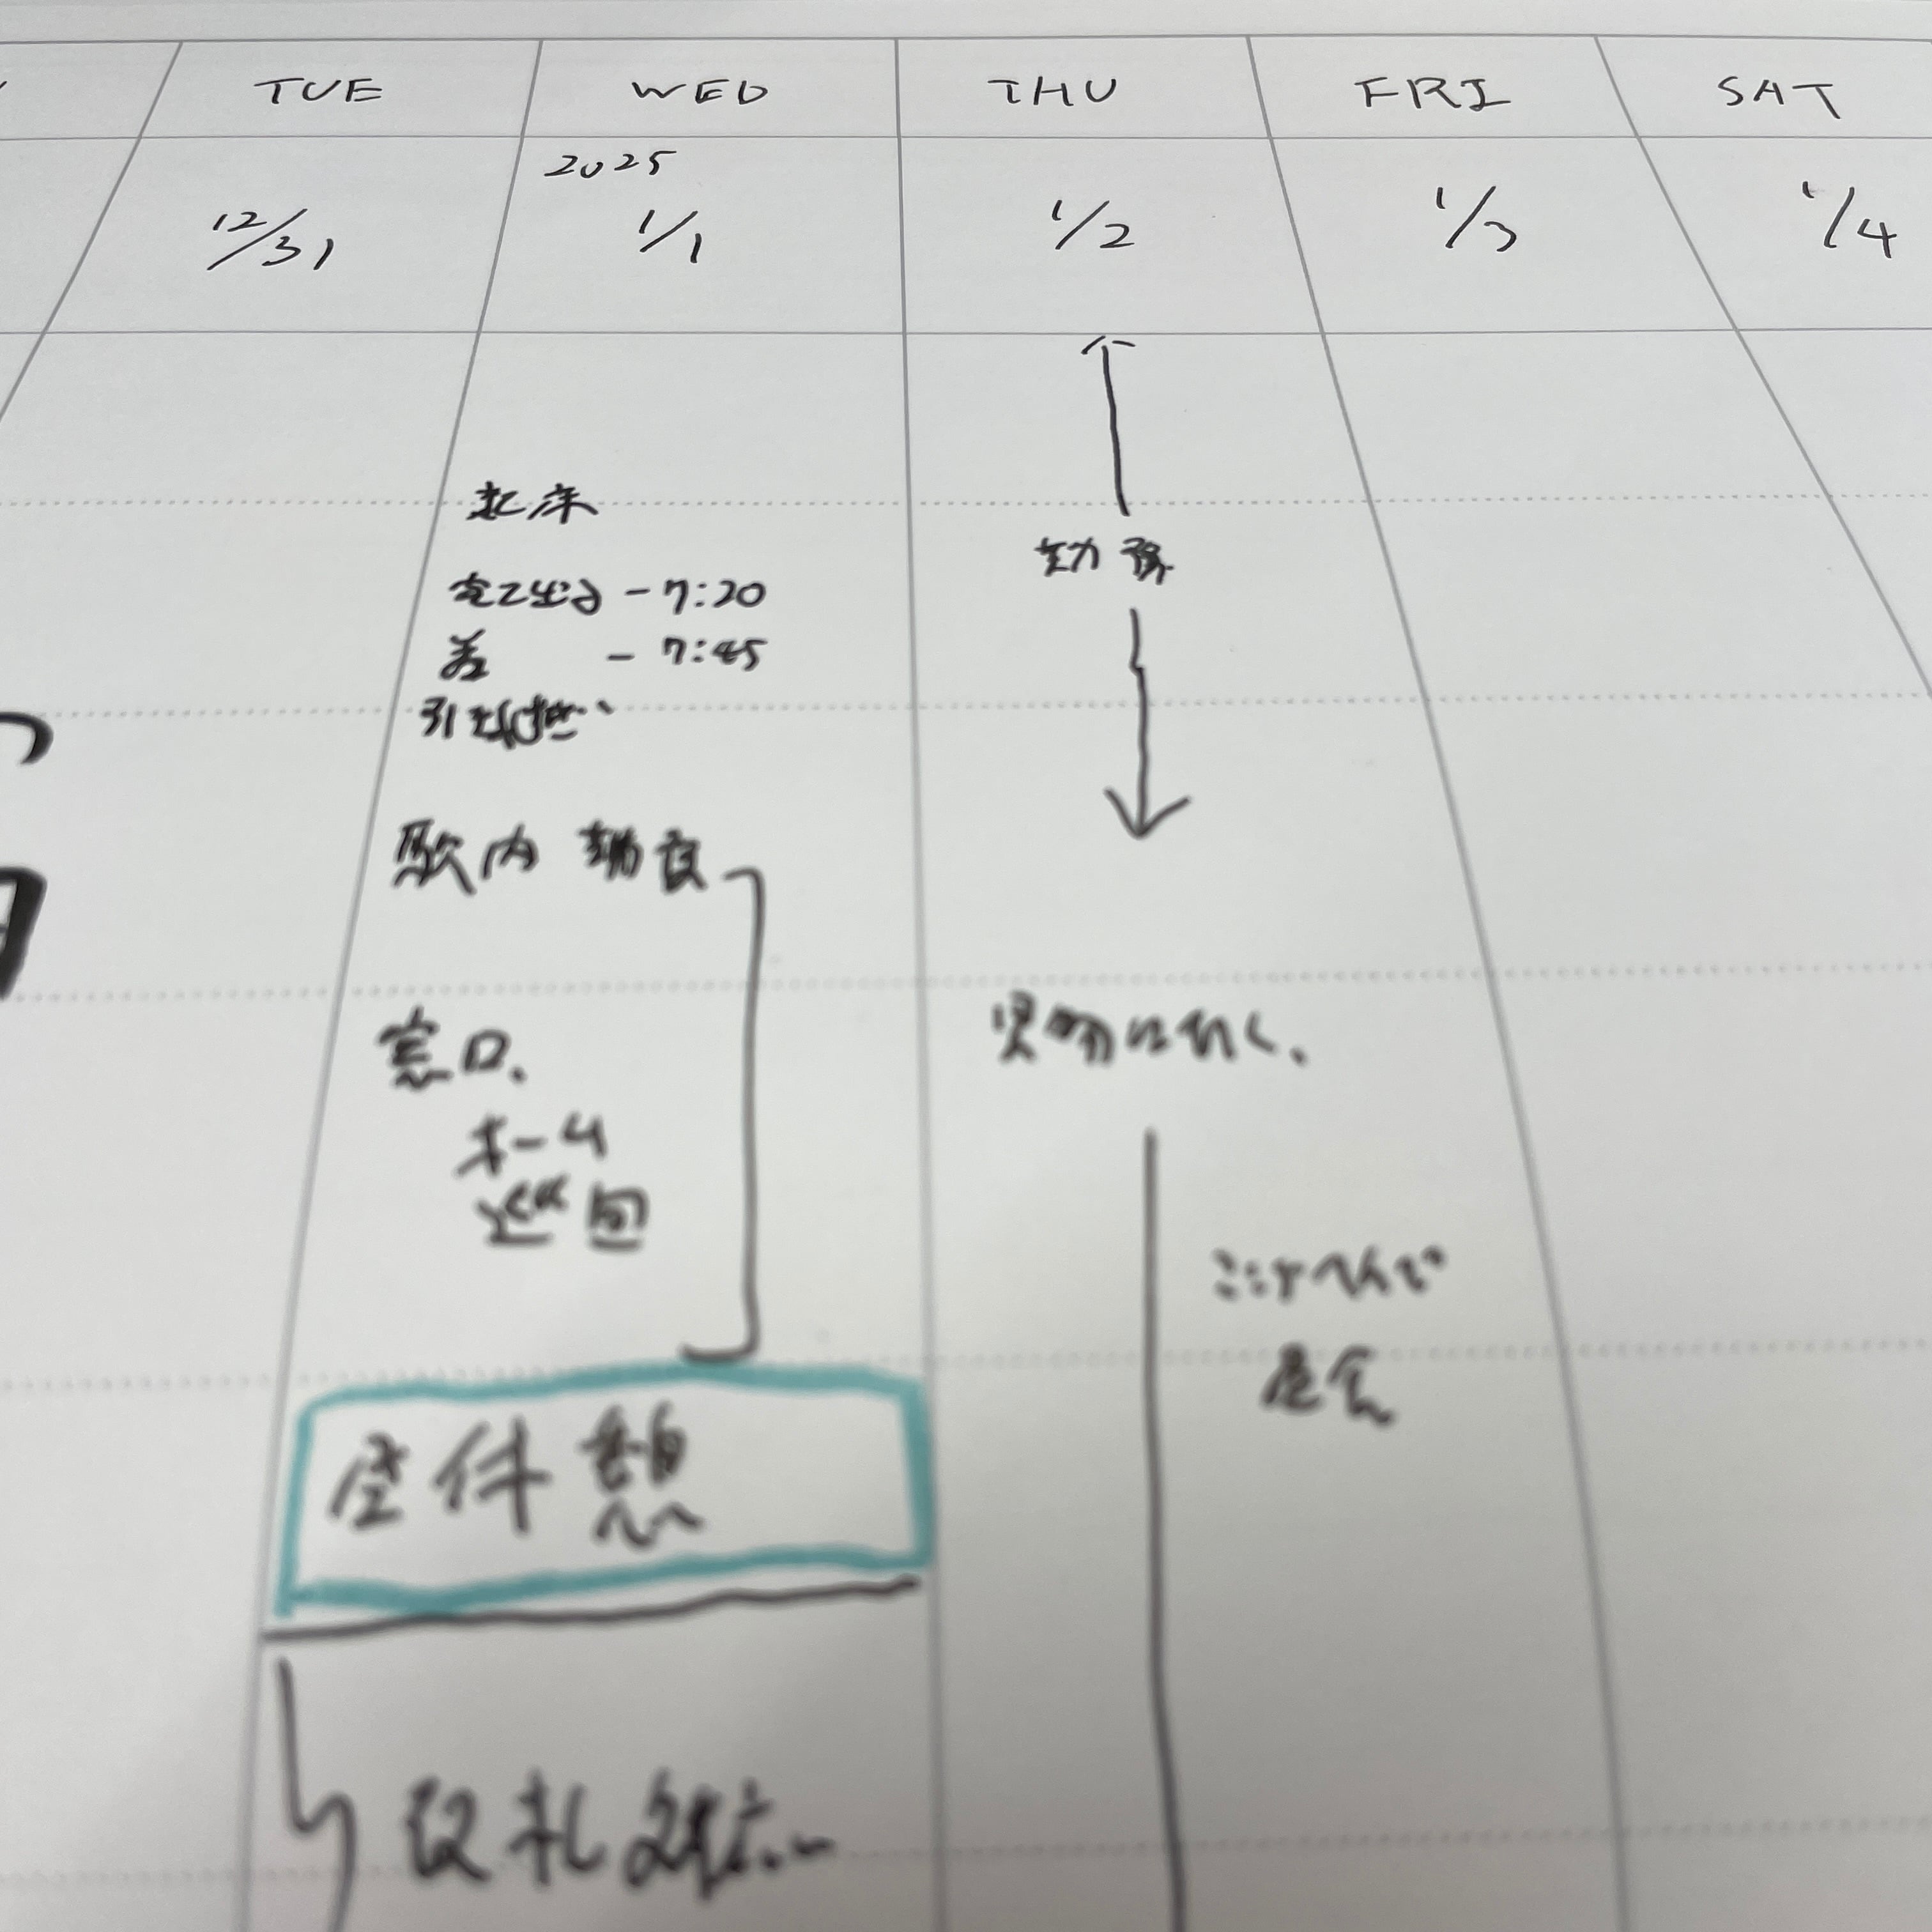 TUE WED THU FRI SAT
2025
12/31 1/1 1/2 1/3 1/4
起床
家を出る - 7:20
着 - 7:45
引き継ぎ、
駅内
窓口、
ホーム
巡回
休憩
改札
勤務
買物に行く、
ここらへんで
昼食